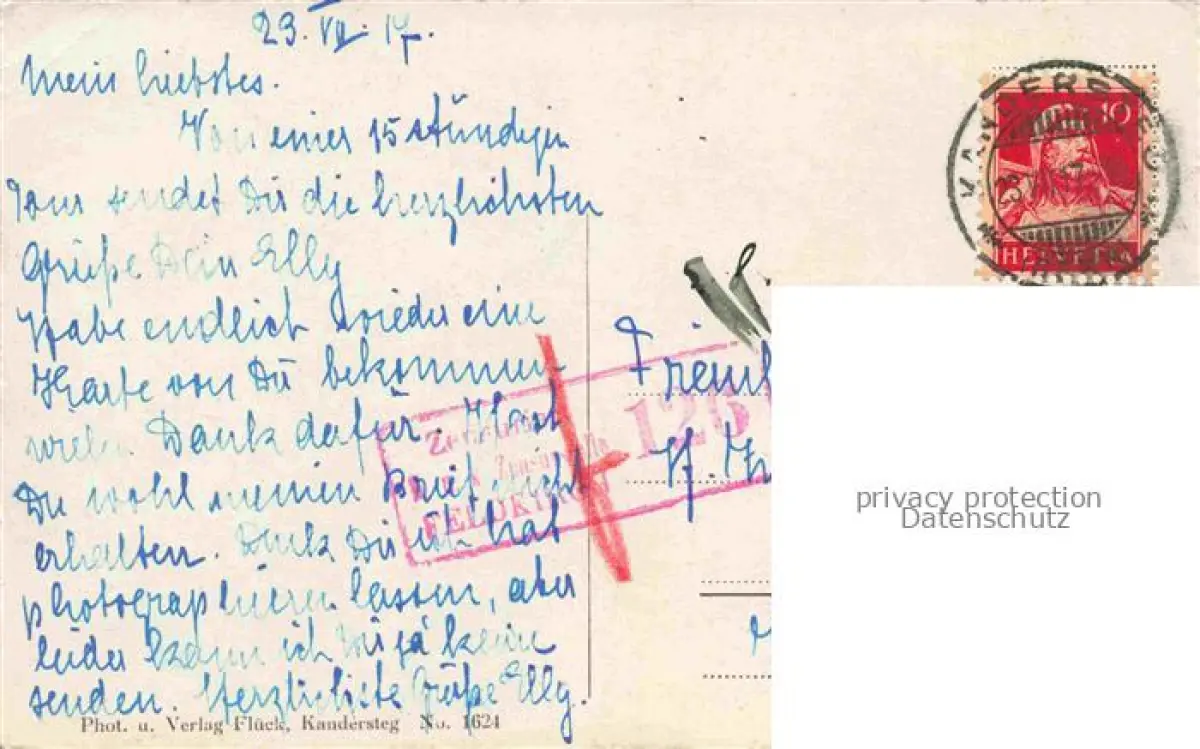 23. VII. 17.
Mein liebstes.
Von einer 15 stündigen
Tour sendet Dir die herzlichsten
Grüße Dein Elly
Habe endlich wieder eine
Karte von Dir bekommen
vielen Dank dafür. Hast
Du wohl meinen Brief nicht
erhalten.
photographieren lassen, aber
leider kann ich Dir ja keine
senden. Herzlichste Grüße Elly.
Phot. u. Verlag Flück, Kandersteg No. 1624
KANDERSTEG
10
HELVETIA
Zensur
FELDKIRCH
125
privacy protection
Datenschutz